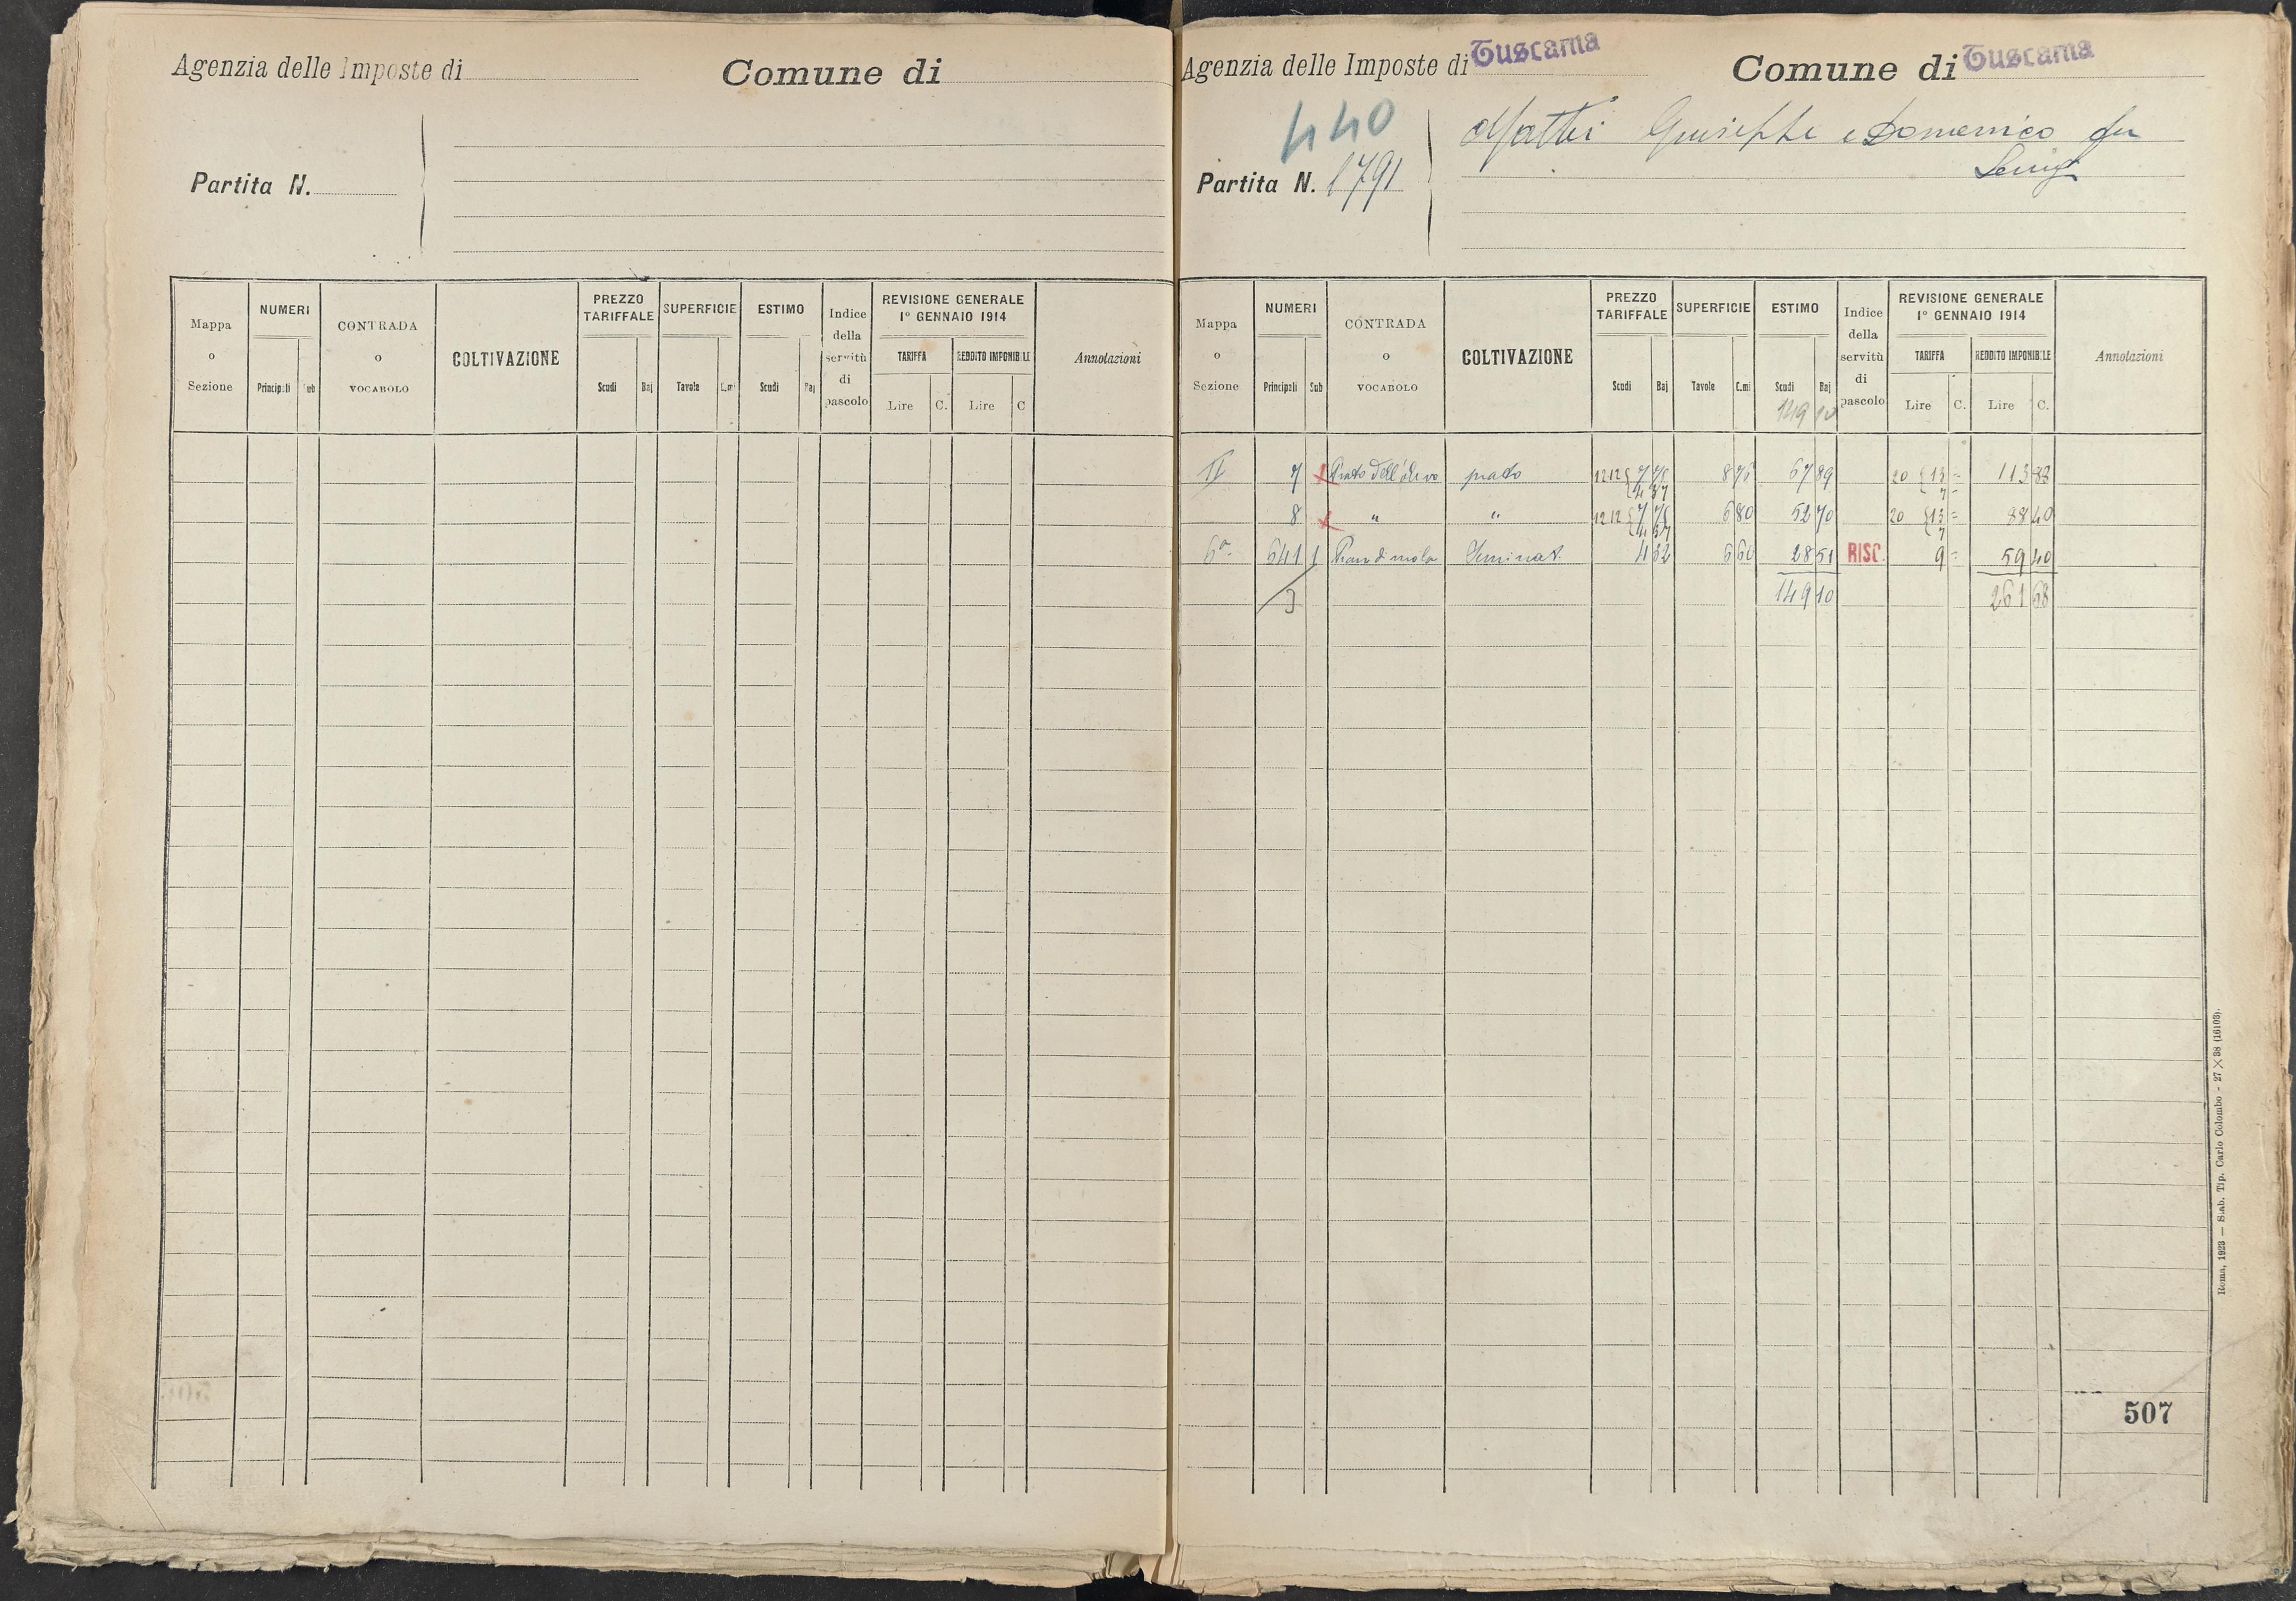 Agenzia delle Imposte di
Comune di
Partita N.
Mappa o Sezione
NUMERI
Principali
Sub
CONTRADA o VOCABOLO
COLTIVAZIONE
PREZZO TARIFFALE
Scudi
Baj
SUPERFICIE
Tavole
C.mi
ESTIMO
Scudi
Baj
Indice della servitù di pascolo
REVISIONE GENERALE
1° GENNAIO 1914
TARIFFA
REDDITO IMPONIBILE
Lire
C.
Lire
C
Annotazioni
Agenzia delle Imposte di Tuscania
Comune di Tuscania
440
Partita N. 1791
Mattei Giuseppe e Domenico fu
Luigi
Mappa o Sezione
NUMERI
Principali
Sub
CONTRADA o VOCABOLO
COLTIVAZIONE
PREZZO TARIFFALE
Scudi
Baj
SUPERFICIE
Tavole
C.mi
ESTIMO
Scudi
Baj
149 10
Indice della servitù di pascolo
REVISIONE GENERALE
1° GENNAIO 1914
TARIFFA
REDDITO IMPONIBILE
Lire
C.
Lire
C.
Annotazioni
II 7 Prato dell'olivo prato 12 12 7 75 4 37 8 76 67 89 20 13 = 7 = 113 88
8 " " 12 12 7 75 4 37 6 80 52 70 20 13 = 7 = 88 40
6a 641 1 Pian di mola Seminat. 4 32 6 60 28 51 RISC. 9 = 59 40
3 149 10 261 68
Roma, 1923 — Stab. Tip. Carlo Colombo - 27×38 (16103).
507